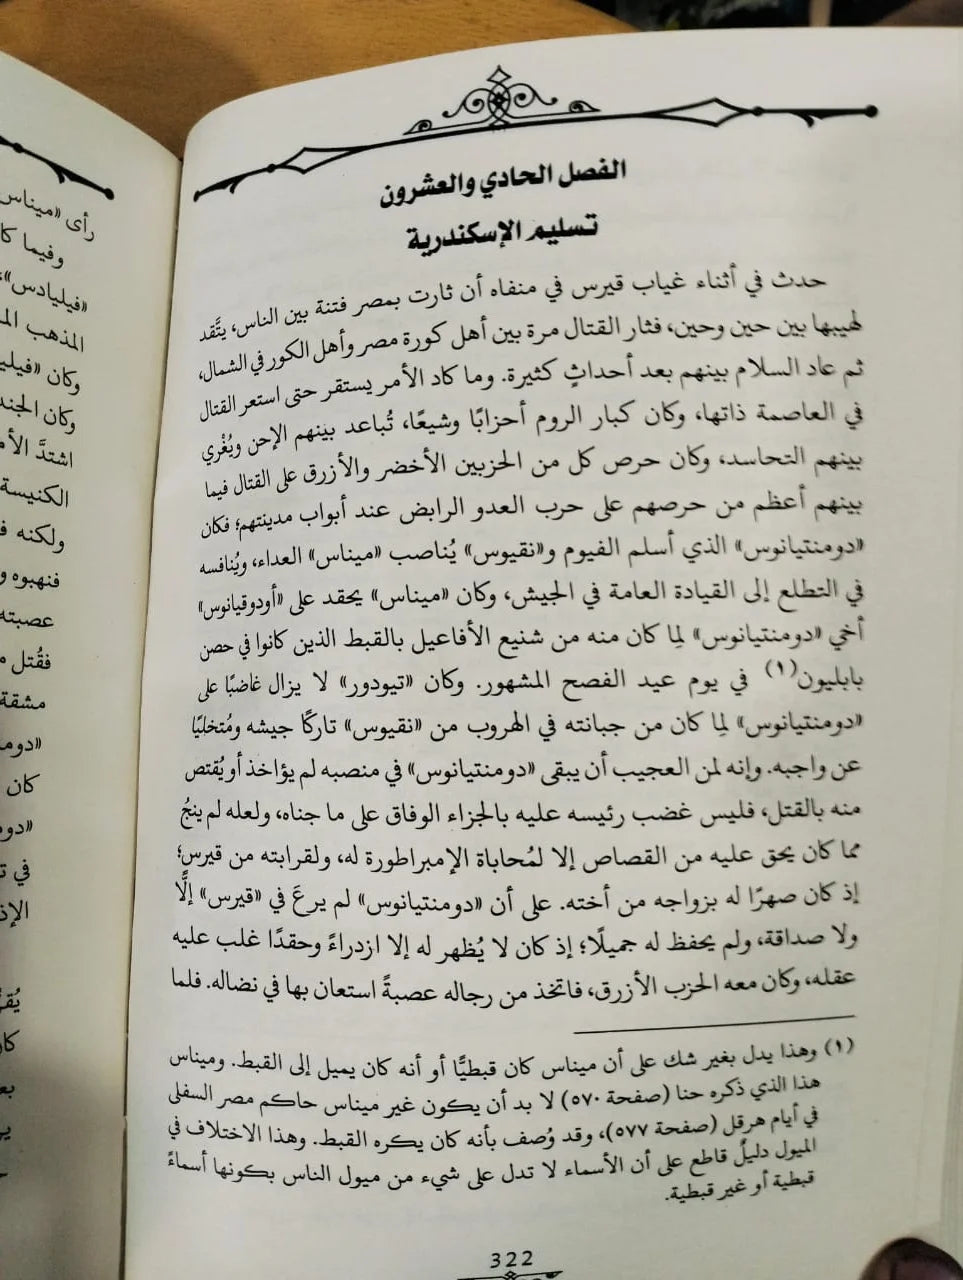 الفصل الحادي والعشرون
تسليم الإسكندرية
حدث في أثناء غياب قيرس في منفاه أن ثارت بمصر فتنة بين الناس، يتَّقد
لهيبها بين حين وحين، فثار القتال مرة بين أهل كورة مصر وأهل الكور في الشمال،
ثم عاد السلام بينهم بعد أحداثٍ كثيرة. وما كاد الأمر يستقر حتى استعر القتال
في العاصمة ذاتها، وكان كبار الروم أحزابًا وشيعًا، تُباعد بينهم الإحن ويُغْري
بينهم التحاسد، وكان حرص كل من الحزبين الأخضر والأزرق على القتال فيما
بينهم أعظم من حرصهم على حرب العدو الرابض عند أبواب مدينتهم؛ فكان
«دومنتيانوس» الذي أسلم الفيوم و«نقيوس» يُناصب «ميناس» العداء، ويُنافسه
في التطلع إلى القيادة العامة في الجيش، وكان «ميناس» يحقد على «أودوقيانوس»
أخي «دومنتيانوس» لِما كان منه من شنيع الأفاعيل بالقبط الذين كانوا في حصن
بابليون(١) في يوم عيد الفصح المشهور. وكان «تيودور» لا يزال غاضبًا على
«دومنتيانوس» لِما كان من جبانته في الهروب من «نقيوس» تاركًا جيشه ومُتخليًا
عن واجبه. وإنه لمن العجيب أن يبقى «دومنتيانوس» في منصبه لم يؤاخذ أو يُقتص
منه بالقتل، فليس غضب رئيسه عليه بالجزاء الوفاق على ما جناه، ولعله لم ينجُ
مما كان يحق عليه من القصاص إلا لمُحاباة الإمبراطورة له، ولقرابته من قيرس؛
إذ كان صهرًا له بزواجه من أخته. على أن «دومنتيانوس» لم يرعَ في «قيرس» إلًّا
ولا صداقة، ولم يحفظ له جميلًا؛ إذ كان لا يُظهر له إلا ازدراءً وحقدًا غلب عليه
عقله، وكان معه الحزب الأزرق، فاتخذ من رجاله عصبةً استعان بها في نضاله. فلما
(١) وهذا يدل بغير شك على أن ميناس كان قبطيًّا أو أنه كان يميل إلى القبط. وميناس
هذا الذي ذكره حنا (صفحة ٥٧٠) لا بد أن يكون غير ميناس حاكم مصر السفلى
في أيام هرقل (صفحة ٥٧٧)، وقد وُصف بأنه كان يكره القبط. وهذا الاختلاف في
الميول دليلٌ قاطع على أن الأسماء لا تدل على شيء من ميول الناس بكونها أسماءً
قبطية أو غير قبطية.
322